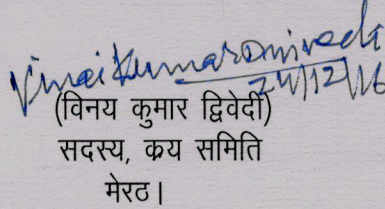 Vinai Kumar Dwivedi
24/12/16
(विनय कुमार द्विवेदी)
सदस्य, क्रय समिति
मेरठ।